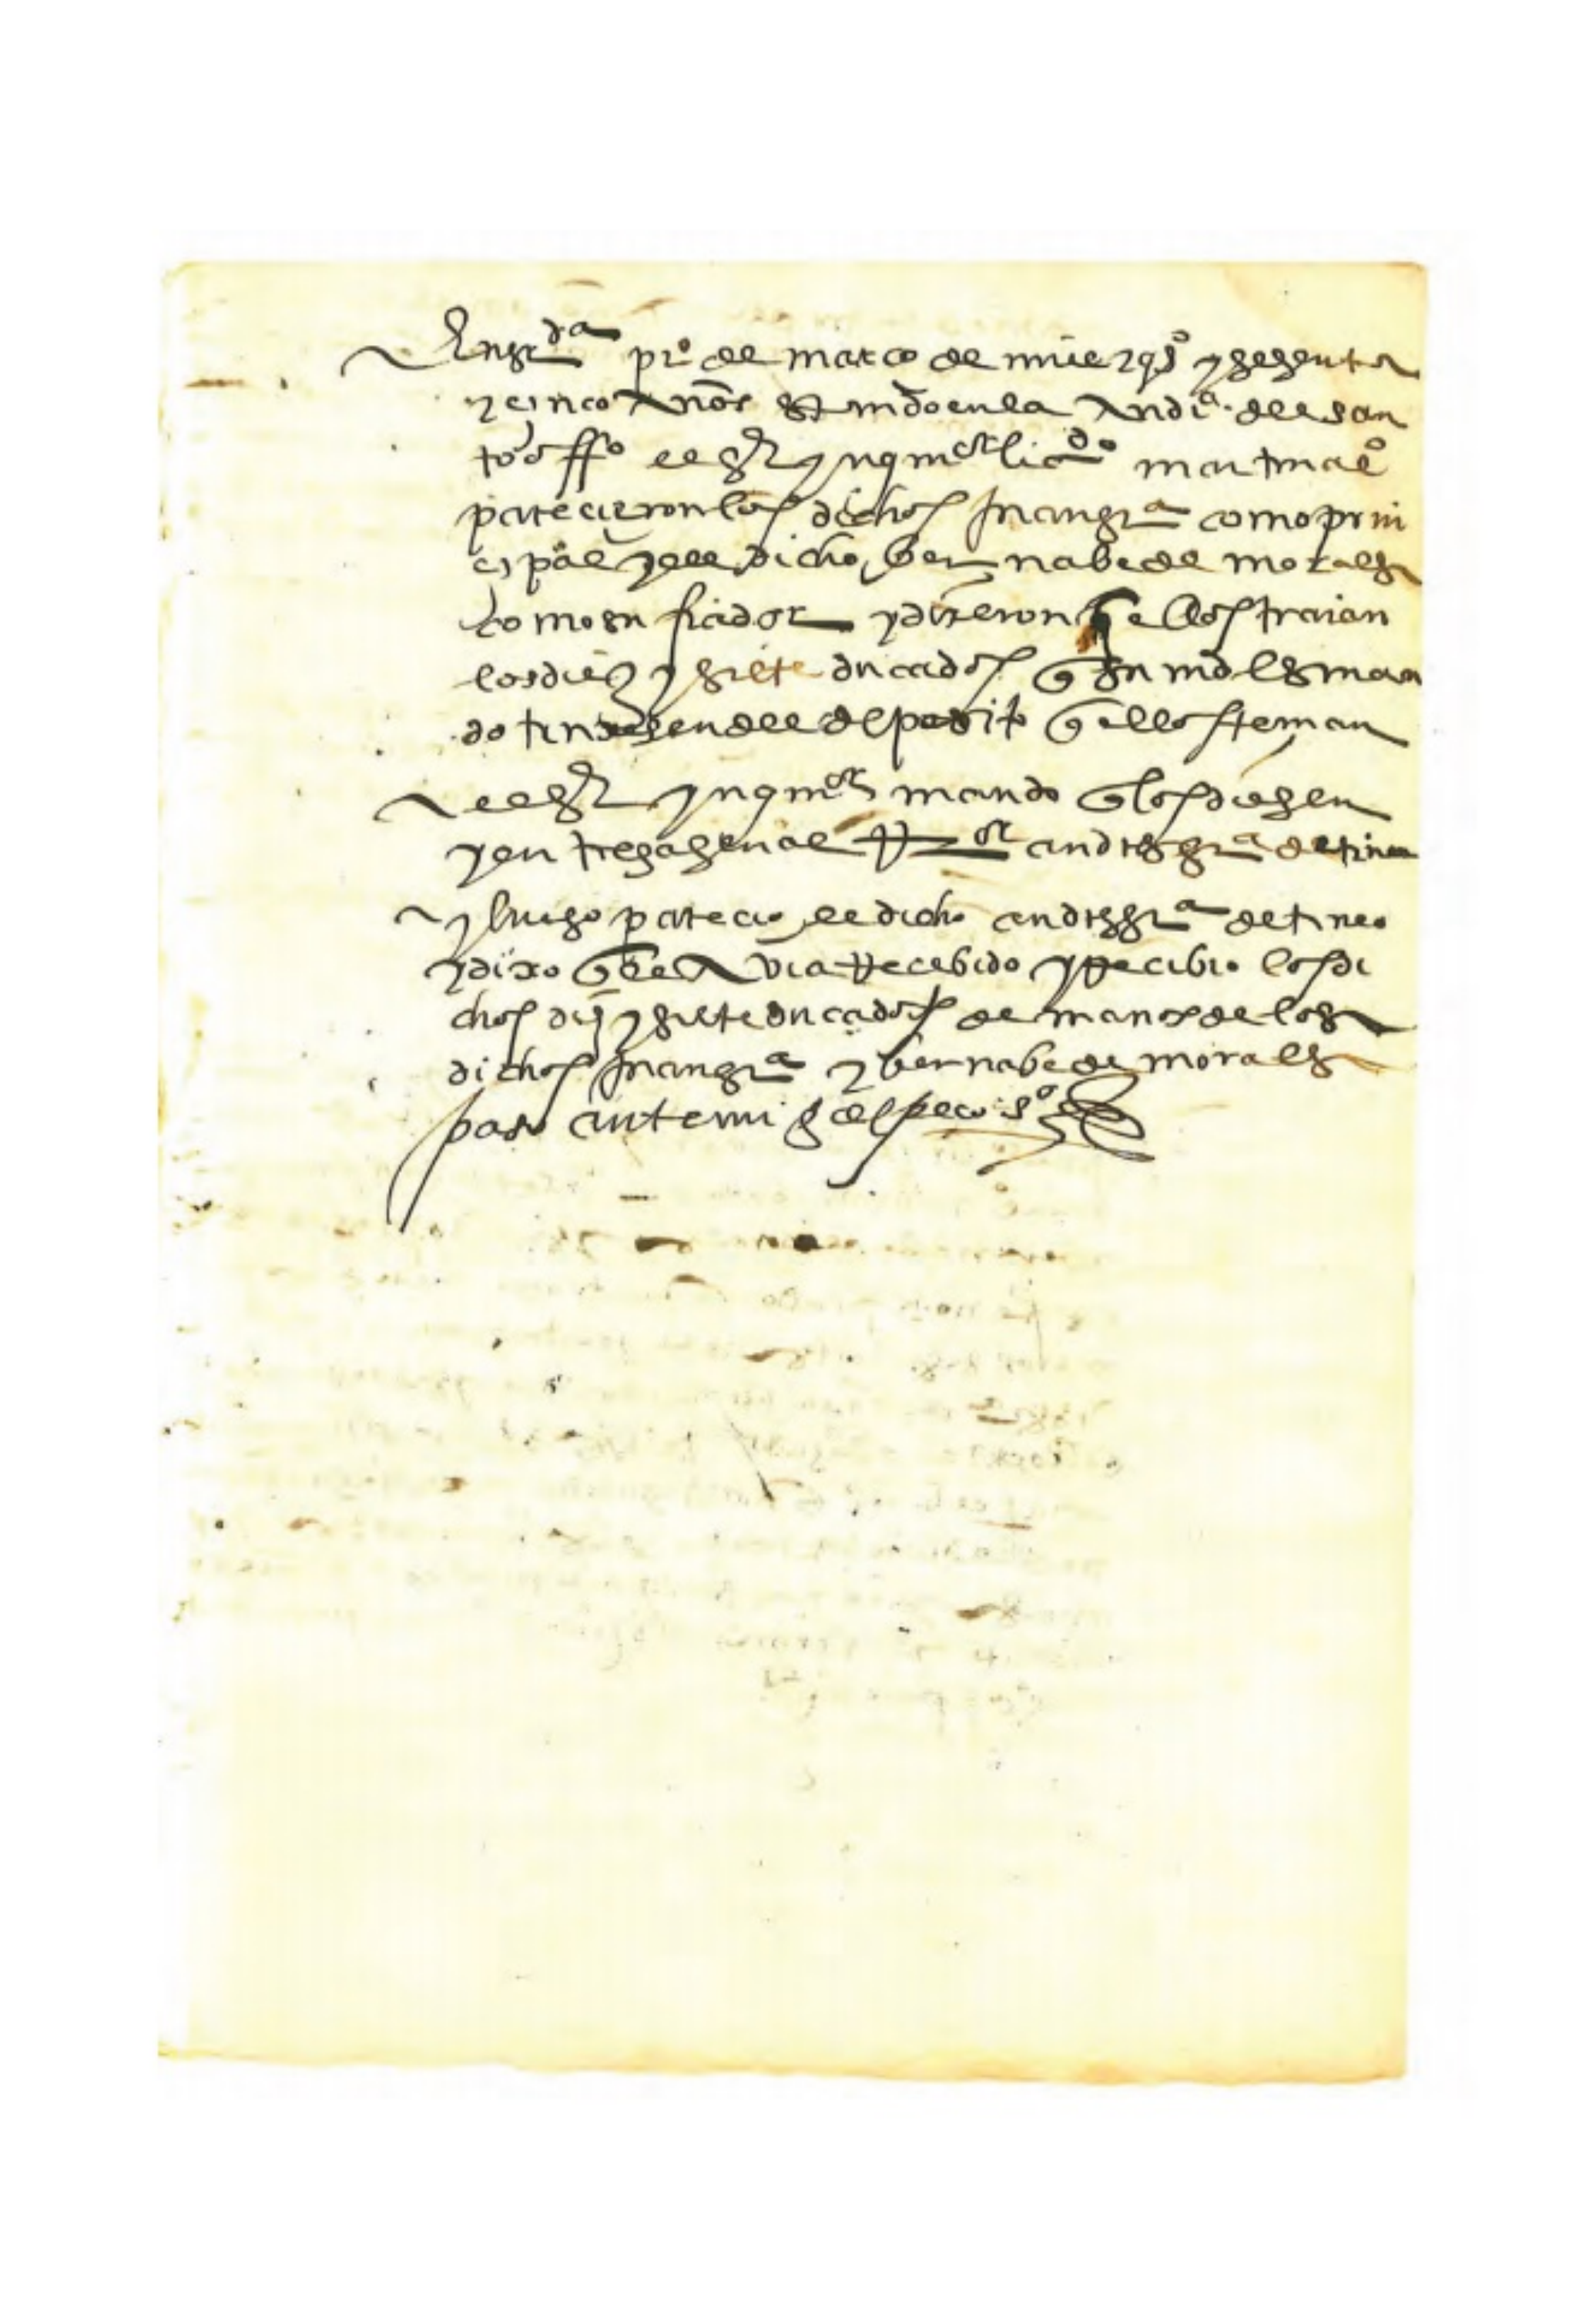 En gr.da pro de março de mill e qos y sesenta
y cinco años estando en la audia del san
to offo el sr ynqr.or licdo martin alo
parecieron los dichos juan gra como prin
cipal y el dicho bernabe de morales
como su fiador y dixeron q ellos traian
los diez y siete ducados q su md les man
do truxesen del deposito q ellos tenian
el sr ynqor mando q los diesen
y entregasen al rr.or andres gra de tineo
y luego parecio el dicho andres gra de tineo
y dixo q el avia rrecebido y rrecibio los di
chos diez y siete ducados de manos de los
dichos juan gra y bernabe de morales
paso ante mi g despeco so